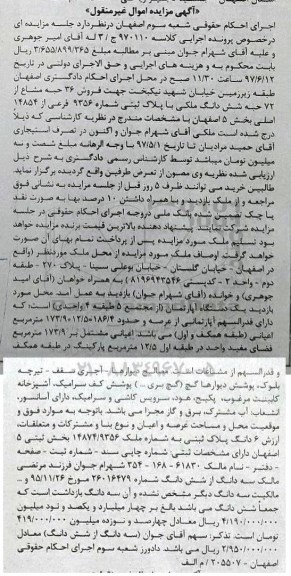 «آگهی مزایده اموال غیرمنقول»
اجرای احکام حقوقی شعبه سوم اصفهان درنظردارد جلسه مزایده ای
درخصوص پرونده اجرایی کلاسه ۹۷۰۱۱۰ ج / ۳ له آقای امیر جوهری
و علیه آقای شهرام جوان مبنی بر مطالبه مبلغ ۳/۶۵۵/۸۹۹/۲۶۵ ریال
بابت محکوم به و هزینه های اجرایی و حق الاجرای دولتی در تاریخ
۹۷/۶/۱۲ ساعت ۱۱/۳۰ صبح در محل اجرای احکام دادگستری اصفهان
طبقه زیرزمین خیابان شهید نیکبخت جهت فروش ۳۶ حبه مشاع از
۷۲ حبه شش دانگ ملکی با پلاک ثبتی شماره ۹۳۵۶ فرعی از ۱۴۸۵۴
اصلی بخش ۵ اصفهان با مشخصات مندرج در نظریه کارشناسی که ذیلا
درج شده است ملکی آقای شهرام جوان و اکنون در تصرف استیجاری
آقای حمید مرادیان تا تاریخ ۹۷/۵/۱ با وجه الرهانه مبلغ شصت و سه
میلیون تومان میباشد توسط کارشناس رسمی دادگستری به شرح ذیل
ارزیابی شده نظریه وی مصون از تعرض طرفین واقع گردیده برگزار نماید.
طالبین خرید می توانند ظرف ۵ روز قبل از جلسه مزایده به نشانی فوق
مراجعه و از ملک بازدید و با همراه داشتن ۱۰ درصد بها به صورت نقد
یا چک تضمین شده بانک ملی دروجه اجرای احکام حقوقی در جلسه
مزایده شرکت نمایند. پیشنهاد دهنده بالاترین قیمت برنده مزایده خواهد
بود تسلیم ملک مورد مزایده پس از پرداخت تمام بهای آن صورت
خواهد گرفت اوصاف ملک مورد مزایده از محل ملک موردنظر (واقع
در اصفهان - خیابان گلستان - خیابان بوعلی سینا - پلاک ۲۷۰ - طبقه
دوم - واحد ۳ - کدپستی ۸۱۹۶۹۴۳۵۴۶) به همراه خواهان (آقای امید
جوهری) و خوانده (آقای شهرام جوان) بازدید به عمل آمد محل مورد
بازدید یک دستگاه آپارتمان (از مجتمع ۵ طبقه ۴ واحدی) است، که
دارای قدرالسهم آپارتمانی از عرصه در حدود
اعیانی (طبقه همکف و اول) می باشد اعیانی مشتمل بر ۱۷۳/۹ مترمربع
فضای مفید واحد در طبقه اول ۱۳/۵ مترمربع پارکینگ در طبقه همکف
و قدرالسهم از مشاعات است. نمای دیوارها آجری سقف - تیرچه
بلوک، پوشش دیوارها گچ (گچ بری..) پوشش کف سرامیک، آشپزخانه
کابینت مرغوب، پکیج، هود، سرویس کاشی و سرامیک، دارای آسانسور،
انشعاب آب مشترک، برق و گاز مجزا می باشد. باتوجه به موارد فوق و
موقعیت محل و مساحت عرصه و اعیان و نوع بنا و مشترکات و متعلقات،
ارزش ۶ دانگ پلاک ثبتی به شماره ملک ۱۴۸۷۴/۹۳۵۶ بخش ثبتی ۵
اصفهان دارای مشخصات ثبتی: شماره چاپی سند - شماره ثبت - صفحه
- دفتر - نام مالک ۶۱۸۳۰ - ۱۶۸ - ۳۵۴ شهرام جوان فرزند مرتضی
مالک سه دانگ از شش دانگ شماره ۲۶۰۱۶۴۷۹ مورخ ۹۵/۱۱/۲۶ و ...
مالکیت سه دانگ دیگر مشخص نشده و آن سه دانگ بازداشت است که
جمعاً شش دانگ می باشد بالغ بر چهار میلیارد و یکصد و نود میلیون
۴/۱۹۰/۰۰۰/۰۰۰ ریال معادل چهارصد و نوزده میلیون ۴۱۹/۰۰۰/۰۰۰
تومان است. تذکر: سهم آقای جوان (سه دانگ از شش دانگ) معادل
۲/۹۵۰/۰۰۰/۰۰۰ ریال می باشد. دادورز شعبه سوم اجرای احکام حقوقی
اصفهان - ۲۰۵۵۰۷ / م الف